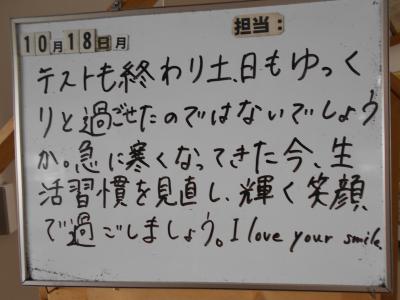 10月18日月 担当:
テストも終わり土、日もゆっく
りと過ごせたのではないでしょう
か。急に寒くなってきた今、生
活習慣を見直し、輝く笑顔
で過ごしましょう。I love your smile